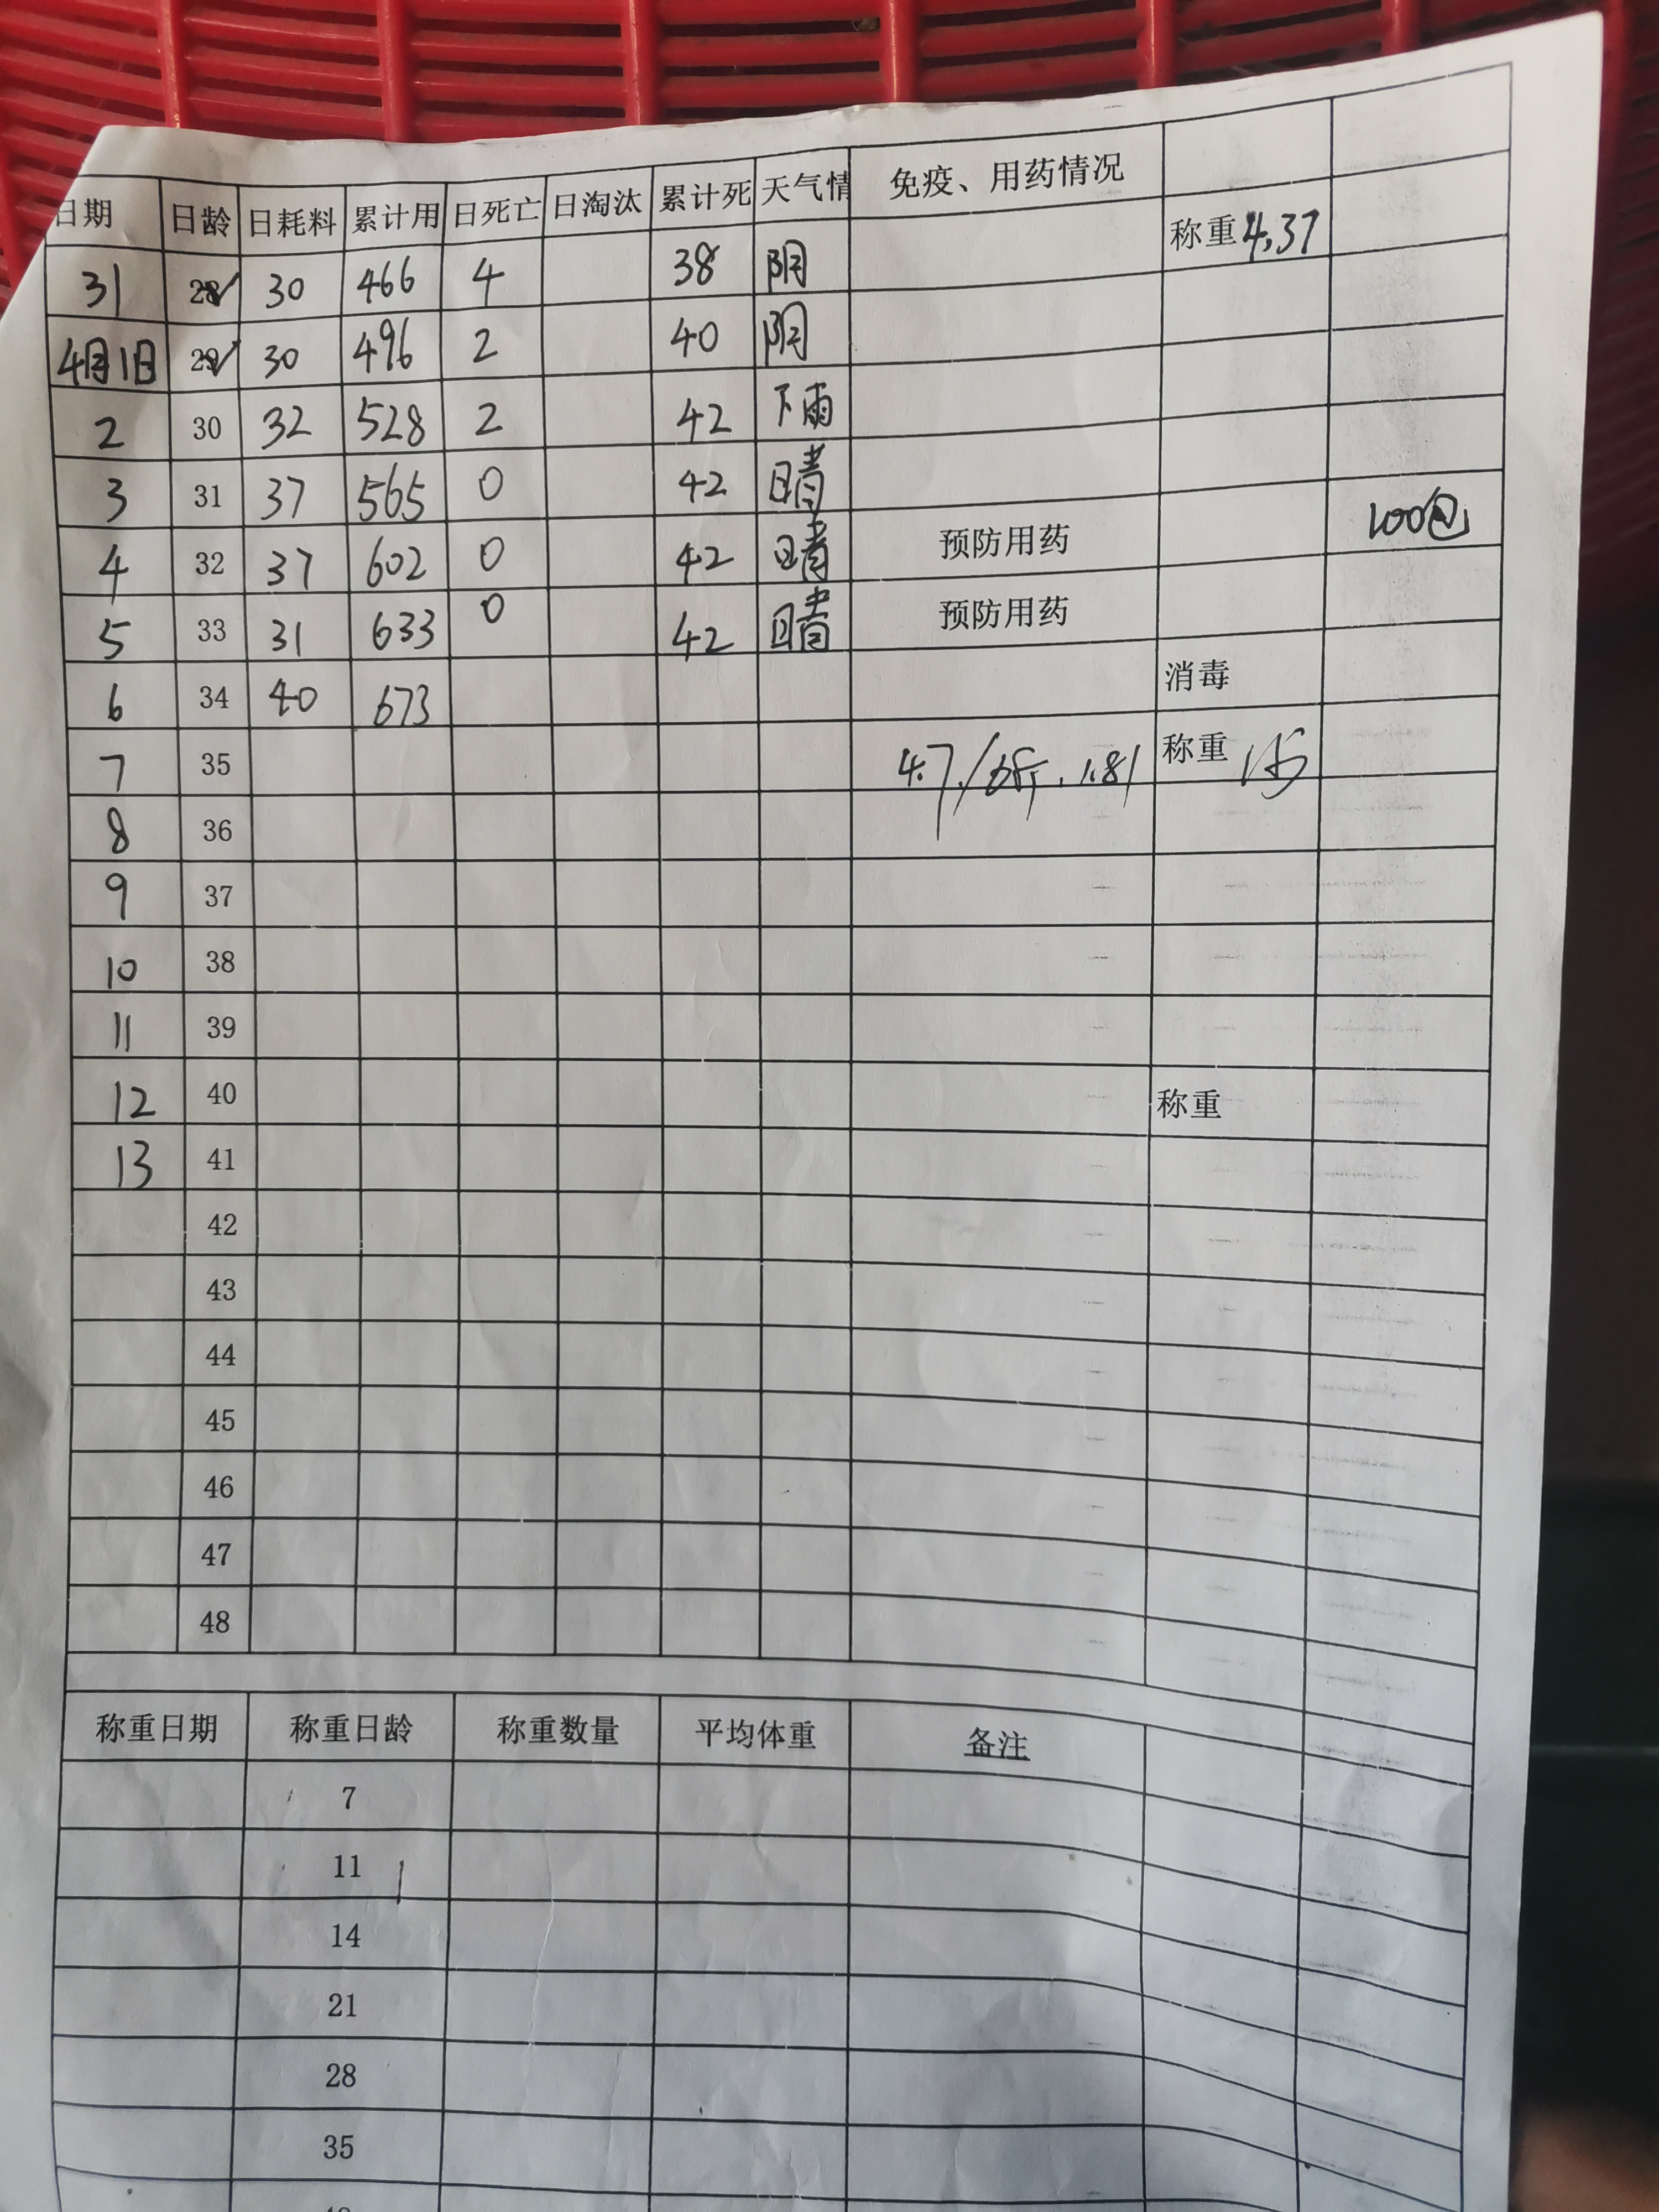 日期 日龄 日耗料 累计用 日死亡 日淘汰 累计死 天气情 免疫、用药情况
31 28 30 466 4 38 阴 称重 4.37
4月1日 29 30 496 2 40 阴
2 30 32 528 2 42 下雨
3 31 37 565 0 42 晴
4 32 37 602 0 42 晴 预防用药 100包
5 33 31 633 0 42 晴 预防用药
6 34 40 673 消毒
7 35 4.7 1.81 称重
8 36
9 37
10 38
11 39
12 40 称重
13 41
42
43
44
45
46
47
48
称重日期 称重日龄 称重数量 平均体重 备注
7
11
14
21
28
35